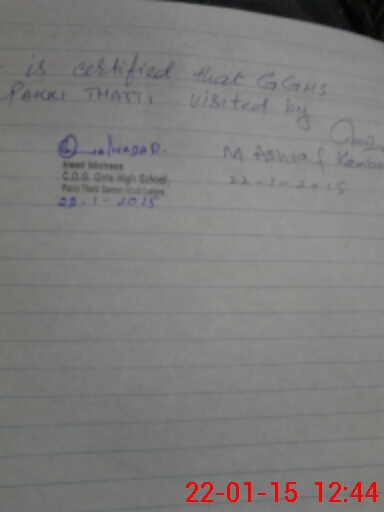 is certified that GGHS
PAKKI THATTI visited by
M Ashraf
22-1-2015
Head Mistress
C.D.G. Girls High School,
Pakki Thatti Saman Abad Lahore
22-1-2015
22-01-15 12:44